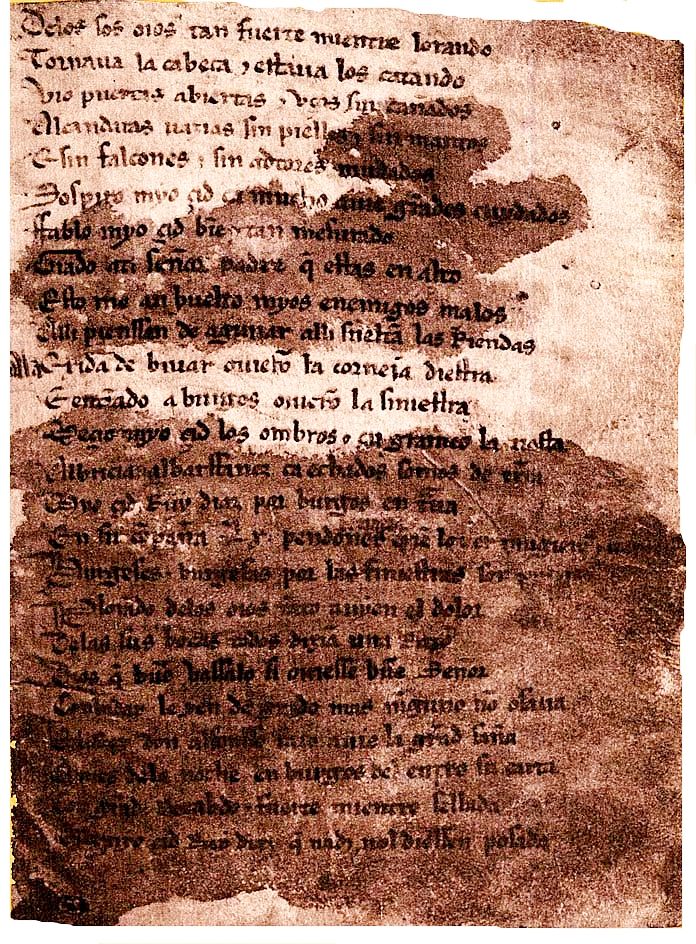 Delos sos oios tan fuerte mientre lorando
Tornaua la cabeça ⁊ estaua los catando
Vio puertas abiertas ⁊ vços sin cañados
Alcandaras uazias sin pielles ⁊ sin mantos
E sin falcones ⁊ sin adtores mudados
Sospiro myo çid ca mucho auie grãdes cuydados
Fablo myo çid biẽ ⁊ tan mesurado
Grado ati señor padre q̃ estas en alto
Esto me an buelto myos enemigos malos
Alli pienssan de aguiiar alli sueltã las Riendas
Ala Exida de biuar ouierõ la corneja diestra
E entrãdo a burgos ouierõ la siniestra
Meçio myo çid los ombros ⁊ en grameo la tiesta
Albricia albarffanez ca echados somos de trr̃a
Myo çid Ruy diaz por burgos en traua
En su cõpaña .Lx. pendones
Burgeses ⁊ burgesas por las finiestras son
Plorando delos oios tanto auyen el dolor
Delas sus bocas todos diziã una Razõ
Dios q̃ buẽ vassalo si ouiesse buẽ Señor
Conbidar le yen de grado mas ninguno nõ osaua
don alfonsso tanto auie la grãd saña
Antes dela noche en burgos del entro su carta
Con grãd Recabdo ⁊ fuerte mientre sellada
çid Ruy diaz q̃ nadi nol diessen posada